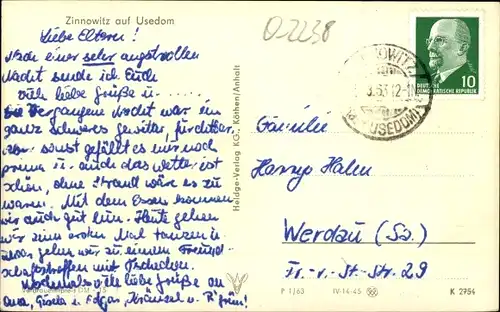 Zinnowitz auf Usedom
O-2238
Liebe Eltern!
Nach einer sehr angstvollen
Nacht sende ich Euch
viele liebe Grüße u. ....
Die vergangene Nacht war ein
ganz schweres Gewitter, fürchter.
Aber sonst gefällt es mir noch
prima u. auch das Wetter ist
schön, ohne Strand wäre es zu
warm. Mit dem Essen kommen
wir auch gut hin. Heute gehen
wir zum ersten Mal tanzen u.
zwar gehen wir zu einem Freund-
schaftstreffen mit Tschechen.
Nochmals viele liebe Grüße an
Oma, Gisela u. Edgar,
ZINNOWITZ
USEDOM
10
DEUTSCHE
DEMOKRATISCHE REPUBLIK
Familie
Harry Hahn
Werdau (Sa.)
Fr.-v.-St-Str. 29
Heldge-Verlag KG, Köthen/Anhalt
P 1/63 IV-14-45 K 2954